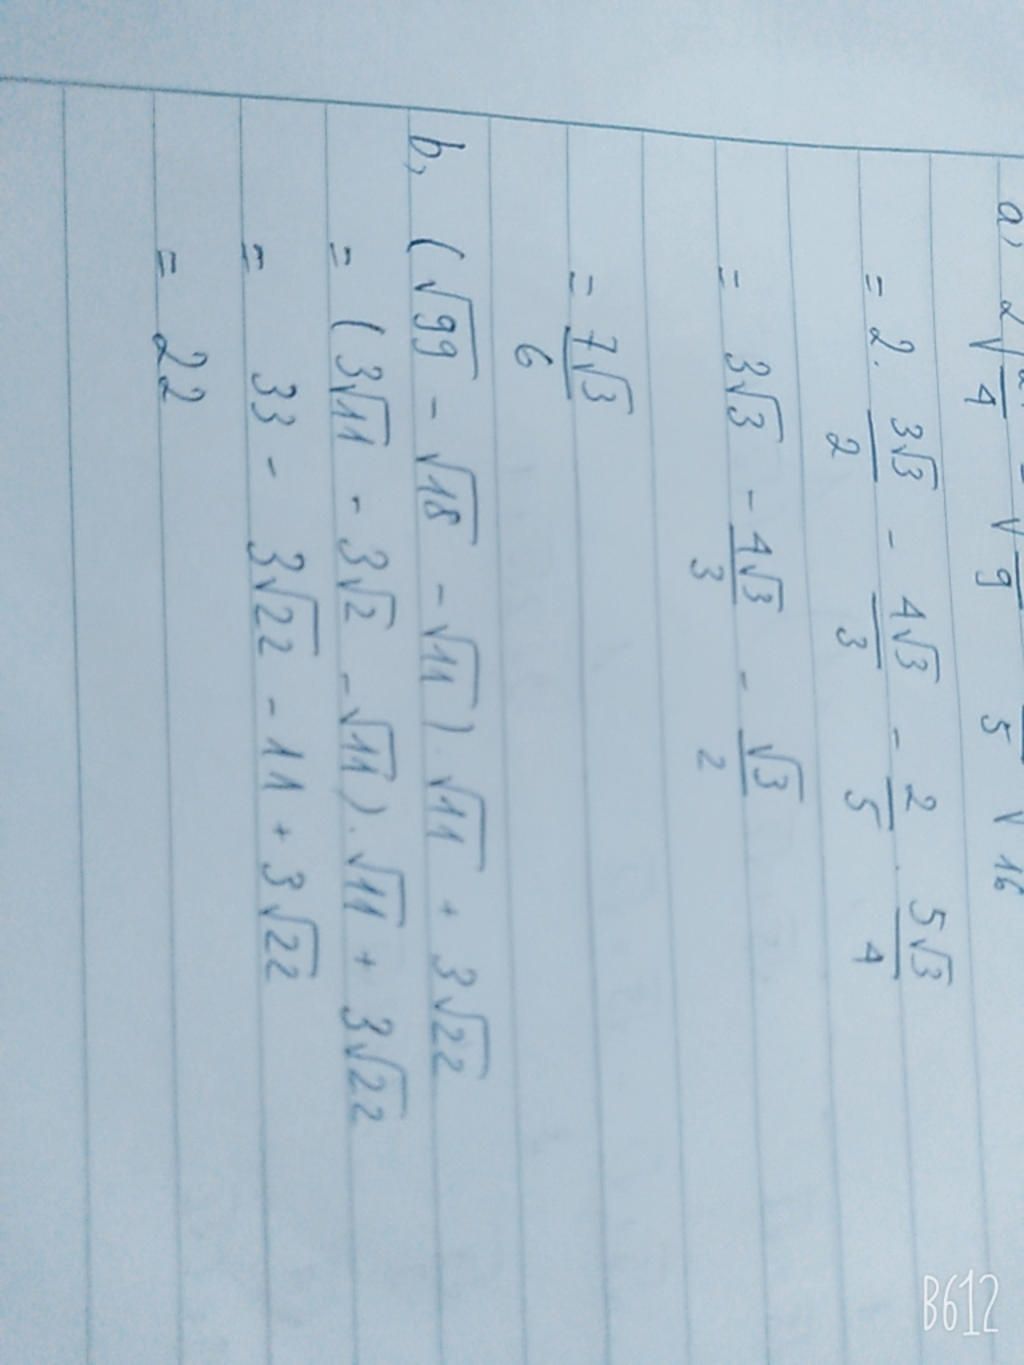 a, 2√ 4 √ 9 5 √ 16
= 2. 3√3/2 - 4√3/3 - 2/5 . 5√3/4
= 3√3 - 4√3/3 - √3/2
= 7√3/6
b, (√99 - √18 - √11). √11 + 3√22
= (3√11 - 3√2 - √11). √11 + 3√22
= 33 - 3√22 - 11 + 3√22
= 22
B612